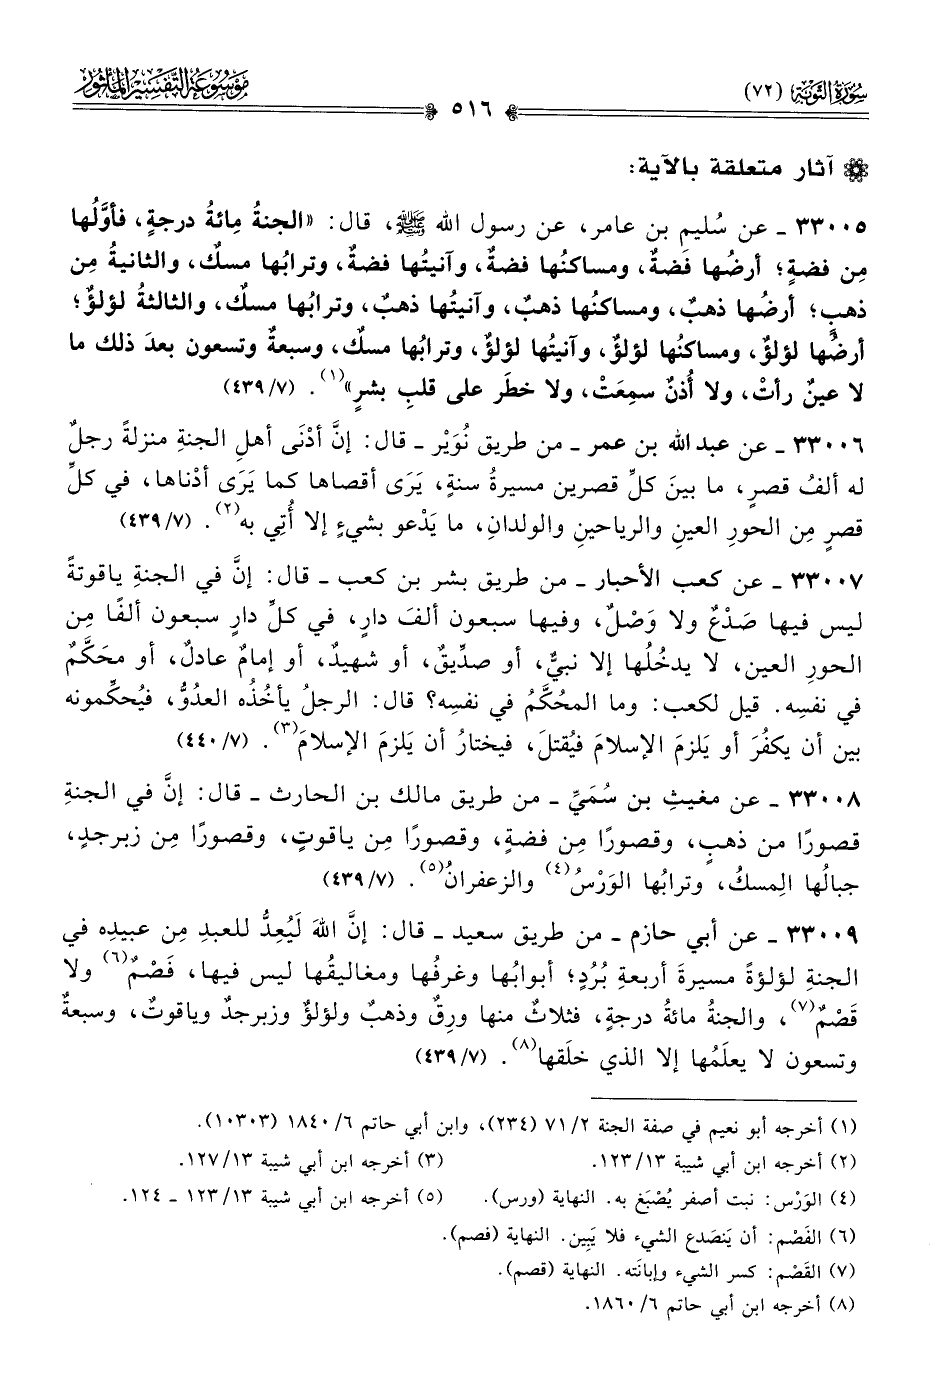 سُورَةُ التَّوْبَةِ (٧٢)
٥١٦
مَوْسُوعَةُ التَّفْسِيرِ المَأْثُورِ
آثار متعلقة بالآية:
٣٣٠٠٥ ـ عن سُليم بن عامر، عن رسول الله ﷺ، قال: «الجنةُ مِائةُ درجةٍ، فأوَّلُها
مِن فضةٍ؛ أرضُها فضةٌ، ومساكنُها فضةٌ، وآنيتُها فضةٌ، وترابُها مسكٌ، والثانيةُ مِن
ذهبٍ؛ أرضُها ذهبٌ، ومساكنُها ذهبٌ، وآنيتُها ذهبٌ، وترابُها مسكٌ، والثالثةُ لؤلؤٌ؛
أرضُها لؤلؤٌ، ومساكنُها لؤلؤٌ، وآنيتُها لؤلؤٌ، وترابُها مسكٌ، وسبعةٌ وتسعون بعدَ ذلك ما
لا عينٌ رأتْ، ولا أُذنٌ سمِعَتْ، ولا خطَر على قلبِ بشرٍ»(١). (٤٣٩/٧)
٣٣٠٠٦ ـ عن عبد الله بن عمر ـ من طريق ثُوَيْر ـ قال: إنَّ أدْنَى أهلِ الجنةِ منزلةً رجلٌ
له ألفُ قصرٍ، ما بينَ كلِّ قصرين مسيرةُ سنةٍ، يَرَى أقصاها كما يَرَى أدْناها، في كلِّ
قصرٍ مِن الحورِ العينِ والرياحينِ والولدانِ، ما يَدْعو بشيءٍ إلا أُتِي به(٢). (٤٣٩/٧)
٣٣٠٠٧ ـ عن كعب الأحبار ـ من طريق بشر بن كعب ـ قال: إنَّ في الجنةِ ياقوتةً
ليس فيها صَدْعٌ ولا وَصْلٌ، وفيها سبعون ألفَ دارٍ، في كلِّ دارٍ سبعون ألفًا مِن
الحورِ العين، لا يدخُلُها إلا نبيٌّ، أو صدِّيقٌ، أو شهيدٌ، أو إمامٌ عادلٌ، أو محَكَّمٌ
في نفسِه. قيل لكعب: وما المحُكَّمُ في نفسِه؟ قال: الرجلُ يأخُذُه العدُوُّ، فيُحكِّمونه
بين أن يكفُرَ أو يَلزمَ الإسلامَ فيُقتلَ، فيختارُ أن يَلزمَ الإسلامَ(٣). (٤٤٠/٧)
٣٣٠٠٨ ـ عن مغيثِ بن سُمَيِّ ـ من طريق مالك بن الحارث ـ قال: إنَّ في الجنةِ
قصورًا من ذهبٍ، وقصورًا مِن فضةٍ، وقصورًا مِن ياقوتٍ، وقصورًا مِن زبرجدٍ،
جبالُها المِسكُ، وترابُها الوَرْسُ(٤) والزعفرانُ(٥). (٤٣٩/٧)
٣٣٠٠٩ ـ عن أبي حازم ـ من طريق سعيد ـ قال: إنَّ اللهَ لَيُعِدُّ للعبدِ مِن عبيدِه في
الجنةِ لؤلؤةً مسيرةَ أربعةِ بُرُدٍ؛ أبوابُها وغرفُها ومغاليقُها ليس فيها، فَصْمٌ(٦) ولا
قَصْمٌ(٧)، والجنةُ مائةُ درجةٍ، فثلاثٌ منها ورِقٌ وذهبٌ ولؤلؤٌ وزبرجدٌ وياقوتٌ، وسبعةٌ
وتسعون لا يعلَمُها إلا الذي خلَقها(٨). (٤٣٩/٧)
(١) أخرجه أبو نعيم في صفة الجنة ٧١/٢ (٢٣٤)، وابن أبي حاتم ١٨٤٠/٦ (١٠٣٠٣).
(٢) أخرجه ابن أبي شيبة ١٢٣/١٣. (٣) أخرجه ابن أبي شيبة ١٢٧/١٣.
(٤) الوَرْس: نبت أصفر يُصْبَغ به. النهاية (ورس). (٥) أخرجه ابن أبي شيبة ١٢٣/١٣ ـ ١٢٤.
(٦) الفَصْم: أن يَنصَدع الشيء فلا يَبِين. النهاية (فصم).
(٧) القَصْم: كسر الشيء وإبانَته. النهاية (قصم).
(٨) أخرجه ابن أبي حاتم ١٨٦٠/٦.